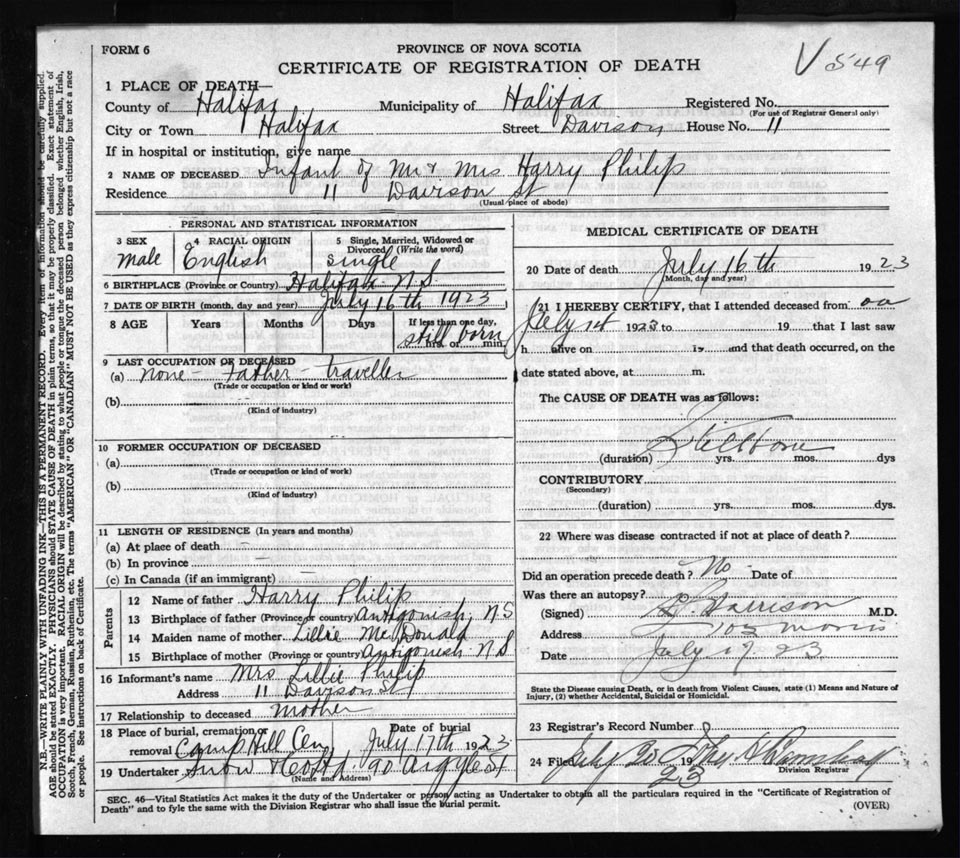 FORM 6
PROVINCE OF NOVA SCOTIA
CERTIFICATE OF REGISTRATION OF DEATH
V 549
1 PLACE OF DEATH—
County of Halifax Municipality of Halifax Registered No.
(For use of Registrar General only)
City or Town Halifax Street Davison House No. 11
If in hospital or institution, give name
2 NAME OF DECEASED Infant of Mr & Mrs Harry Philip
Residence 11 Davison St
(Usual place of abode)
PERSONAL AND STATISTICAL INFORMATION
3 SEX 4 RACIAL ORIGIN 5 Single, Married, Widowed or Divorced (Write the word)
male English single
6 BIRTHPLACE (Province or Country) Halifax N.S
7 DATE OF BIRTH (month, day and year) July 16th 1923
8 AGE Years Months Days If less than one day,
still born hrs. or min.
9 LAST OCCUPATION OF DECEASED
(a) none - Father - traveller
(Trade or occupation or kind of work)
(b)
(Kind of industry)
10 FORMER OCCUPATION OF DECEASED
(a)
(Trade or occupation or kind of work)
(b)
(Kind of industry)
11 LENGTH OF RESIDENCE (In years and months)
(a) At place of death —
(b) In province —
(c) In Canada (if an immigrant) —
Parents
12 Name of father Harry Philip
13 Birthplace of father (Province or country) Antigonish, N S
14 Maiden name of mother Lillie McDonald
15 Birthplace of mother (Province or country) Antigonish N.S
16 Informant's name Mrs Lillie Philip
Address 11 Davison St
17 Relationship to deceased mother
18 Place of burial, cremation or removal Camp Hill Cem Date of burial July 17th 1923
19 Undertaker Snow & Co Ltd 90 Argyle St
(Name and address)
MEDICAL CERTIFICATE OF DEATH
20 Date of death July 16th 1923
(Month, day and year)
21 I HEREBY CERTIFY, that I attended deceased from
July 1923 to 19 that I last saw
h alive on 19 and that death occurred, on the
date stated above, at m.
The CAUSE OF DEATH was as follows:
Stillborn
(duration) yrs. mos. dys
CONTRIBUTORY
(Secondary)
(duration) yrs. mos. dys
22 Where was disease contracted if not at place of death?
Did an operation precede death? No Date of
Was there an autopsy?
(Signed) M.D.
Address Morris
Date July 17 23
State the Disease causing Death, or in death from Violent Causes, state (1) Means and Nature of
Injury, (2) whether Accidental, Suicidal or Homicidal.
23 Registrar's Record Number
24 Filed July 20 19 23
Division Registrar
SEC. 46—Vital Statistics Act makes it the duty of the Undertaker or person acting as Undertaker to obtain all the particulars required in the "Certificate of Registration of
Death" and to fyle the same with the Division Registrar who shall issue the burial permit.
(OVER)
N.B.—WRITE PLAINLY WITH UNFADING INK—THIS IS A PERMANENT RECORD. Every item of information should be carefully supplied.
AGE should be stated EXACTLY. PHYSICIANS should STATE CAUSE OF DEATH in plain terms, so that it may be properly classified. Exact statement of
OCCUPATION is very important. RACIAL ORIGIN will be described by stating to what people or tongue the deceased person belonged whether English, Irish,
Scotch, French, German, Russian, Ruthenian, etc. The terms "AMERICAN" OR "CANADIAN" MUST NOT BE USED as they express citizenship but not a race
or people. See instructions on back of Certificate.